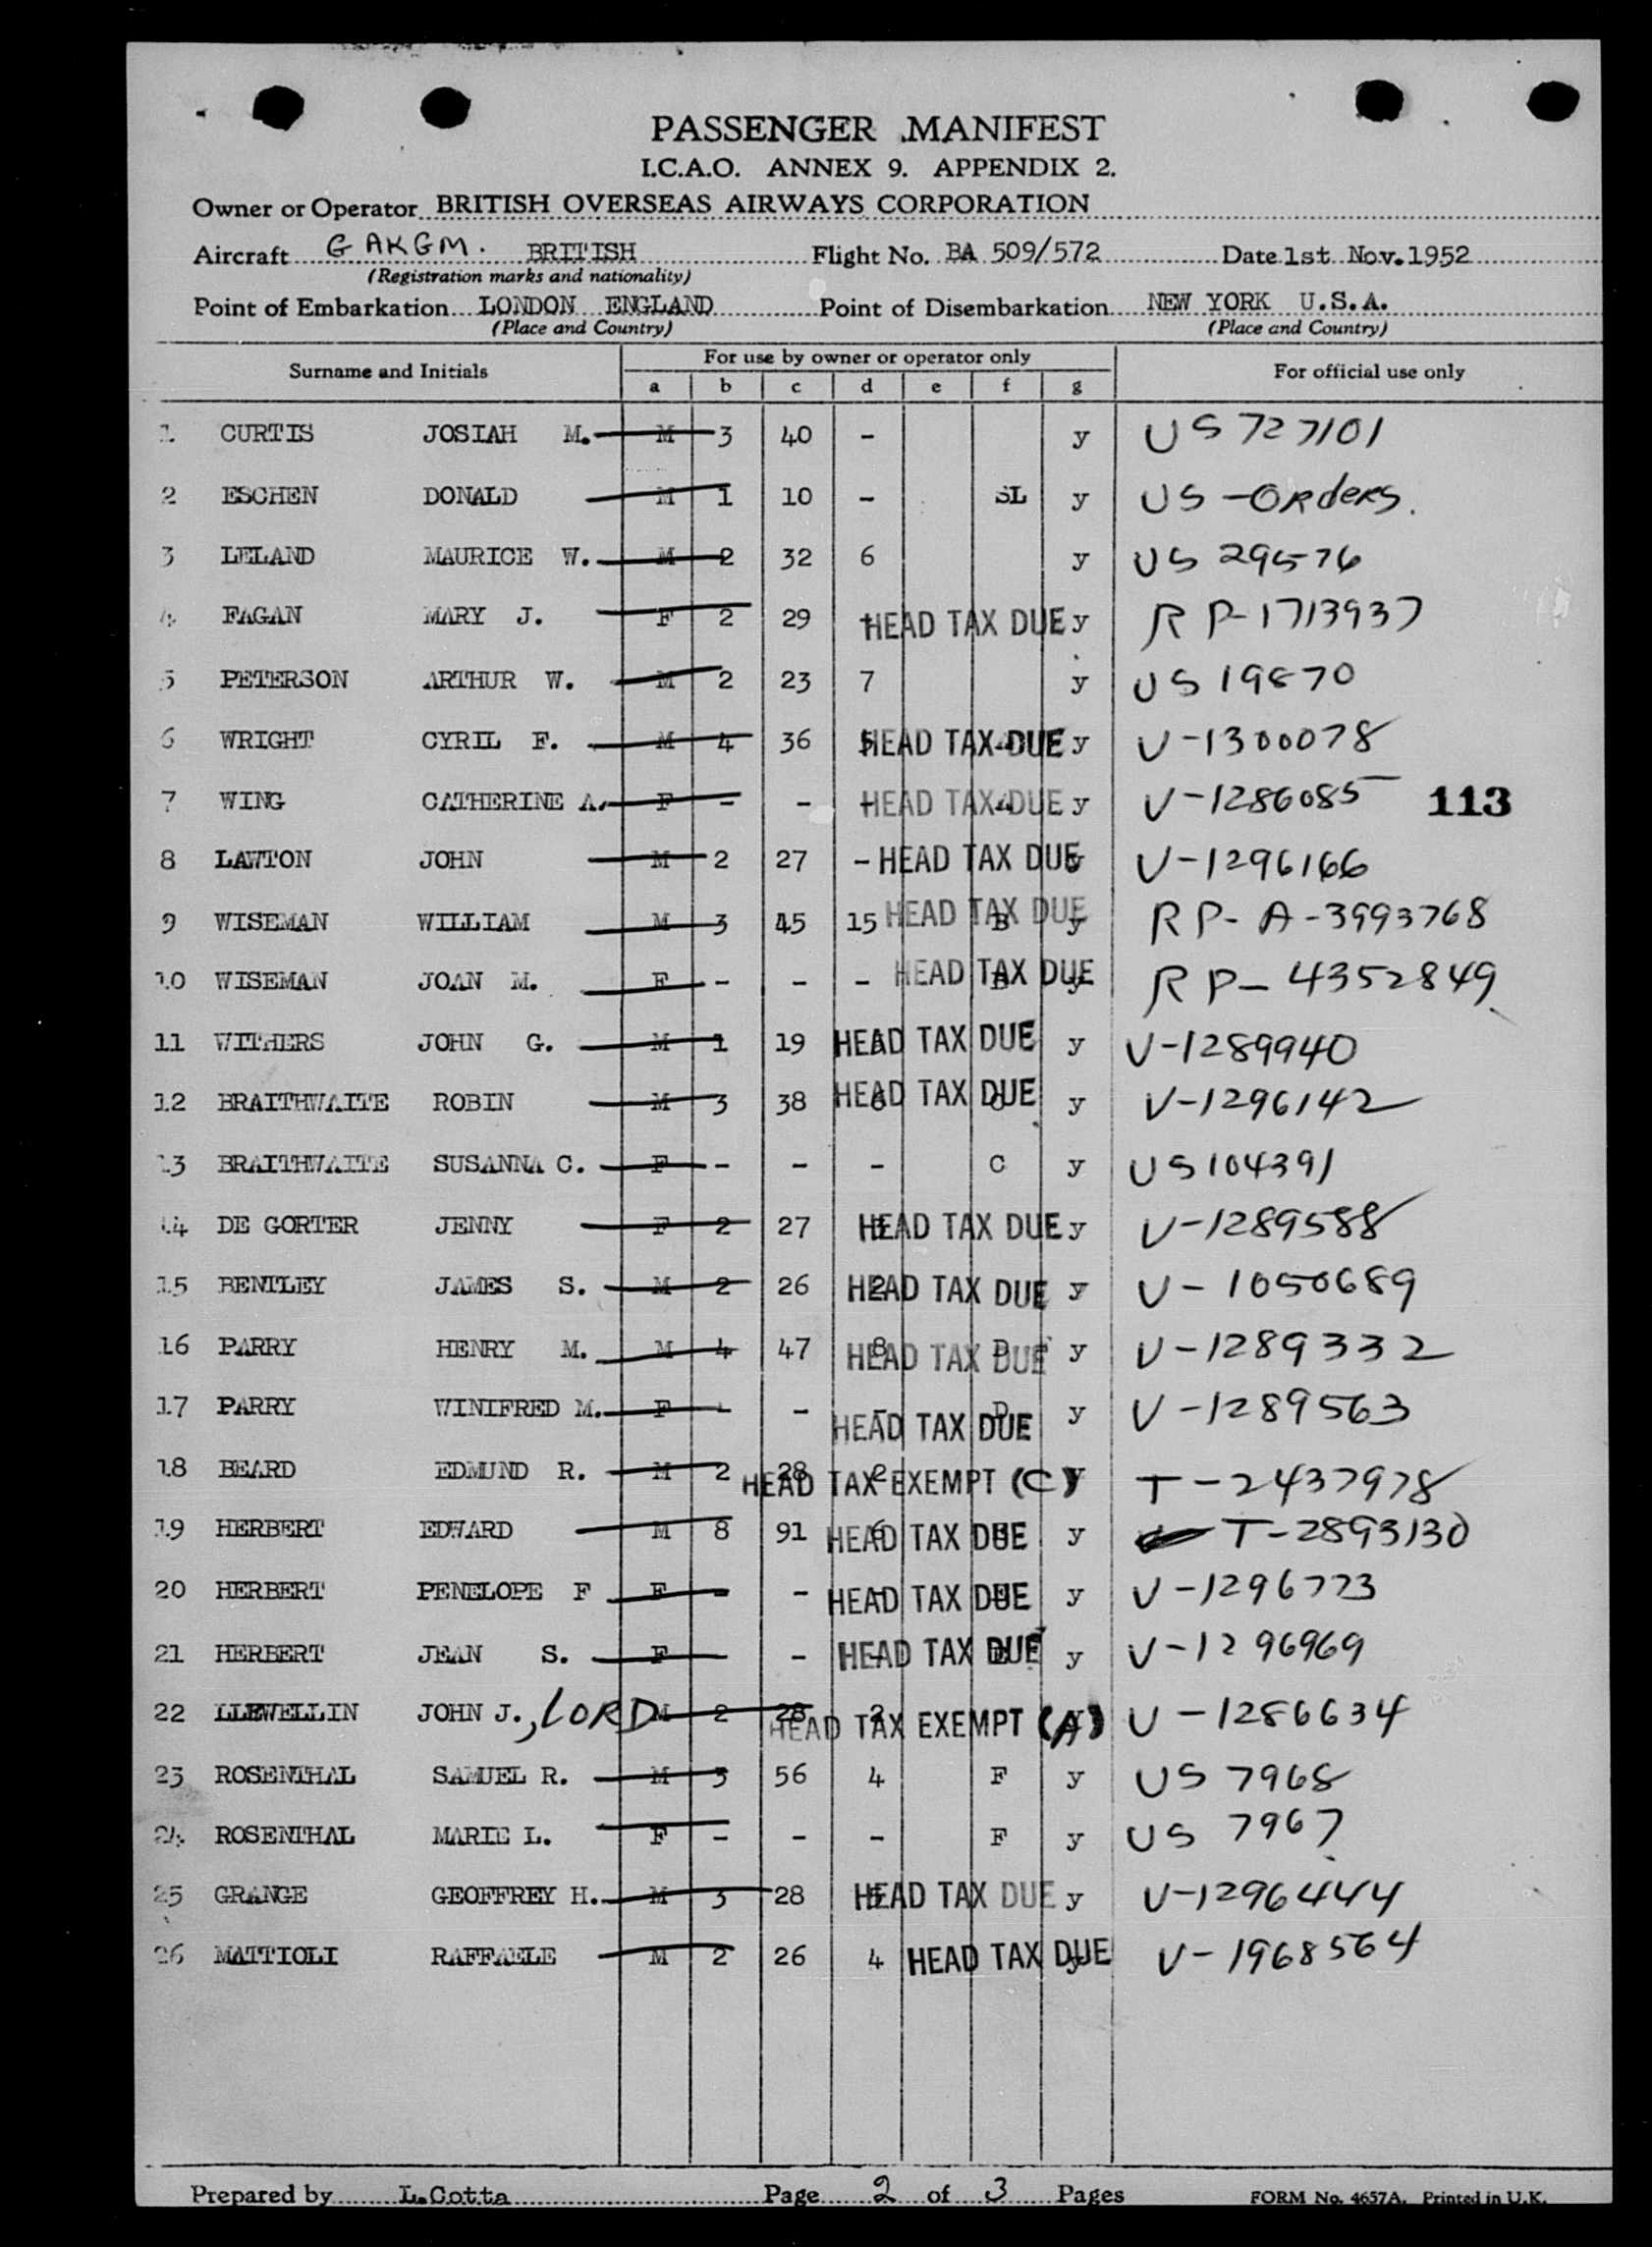 PASSENGER MANIFEST
I.C.A.O. ANNEX 9. APPENDIX 2.
Owner or Operator BRITISH OVERSEAS AIRWAYS CORPORATION
Aircraft G AKGM. BRITISH Flight No. BA 509/572 Date 1st Nov. 1952
(Registration marks and nationality)
Point of Embarkation LONDON ENGLAND Point of Disembarkation NEW YORK U.S.A.
(Place and Country) (Place and Country)
Surname and Initials For use by owner or operator only For official use only
a b c d e f g
1 CURTIS JOSIAH M. M 3 40 - y US 727101
2 ESCHEN DONALD M 1 10 - SL y US - Orders.
3 LELAND MAURICE W. M 2 32 6 y US 29576
4 FAGAN MARY J. F 2 29 - HEAD TAX DUE y RP-1713937
5 PETERSON ARTHUR W. M 2 23 7 y US 19870
6 WRIGHT CYRIL F. M 4 36 HEAD TAX DUE y V-1300078
7 WING CATHERINE A. F - - - HEAD TAX DUE y V-1286085 113
8 LAWTON JOHN M 2 27 - HEAD TAX DUE V-1296166
9 WISEMAN WILLIAM M 3 45 15 HEAD TAX DUE B y RP-A-3993768
10 WISEMAN JOAN M. F - - - HEAD TAX DUE B y RP-4352849
11 WITHERS JOHN G. M 1 19 HEAD TAX DUE y V-1289940
12 BRAITHWAITE ROBIN M 3 38 HEAD TAX DUE C y V-1296142
13 BRAITHWAITE SUSANNA C. F - - - C y US 104391
14 DE GORTER JENNY F 2 27 HEAD TAX DUE y V-1289588
15 BENTLEY JAMES S. M 2 26 2 HEAD TAX DUE y V-1050689
16 PARRY HENRY M. M 4 47 8 HEAD TAX DUE D y V-1289332
17 PARRY WINIFRED M. F - - - HEAD TAX DUE D y V-1289563
18 BEARD EDMUND R. M 2 28 2 HEAD TAX EXEMPT (C) y T-2437978
19 HERBERT EDWARD M 8 91 6 HEAD TAX DUE y T-2893130
20 HERBERT PENELOPE F F - - - HEAD TAX DUE y V-1296773
21 HERBERT JEAN S. F - - - HEAD TAX DUE y V-1296969
22 LLEWELLIN JOHN J., LORD M 2 28 2 HEAD TAX EXEMPT (A) V-1286634
23 ROSENTHAL SAMUEL R. M 3 56 4 F y US 7968
24 ROSENTHAL MARIE L. F - - - F y US 7967
25 GRANGE GEOFFREY H. M 3 28 HEAD TAX DUE y V-1296444
26 MATTIOLI RAFFAELE M 2 26 4 HEAD TAX DUE y V-1968564
Prepared by L.Cotta Page 2 of 3 Pages FORM No. 4657A. Printed in U.K.